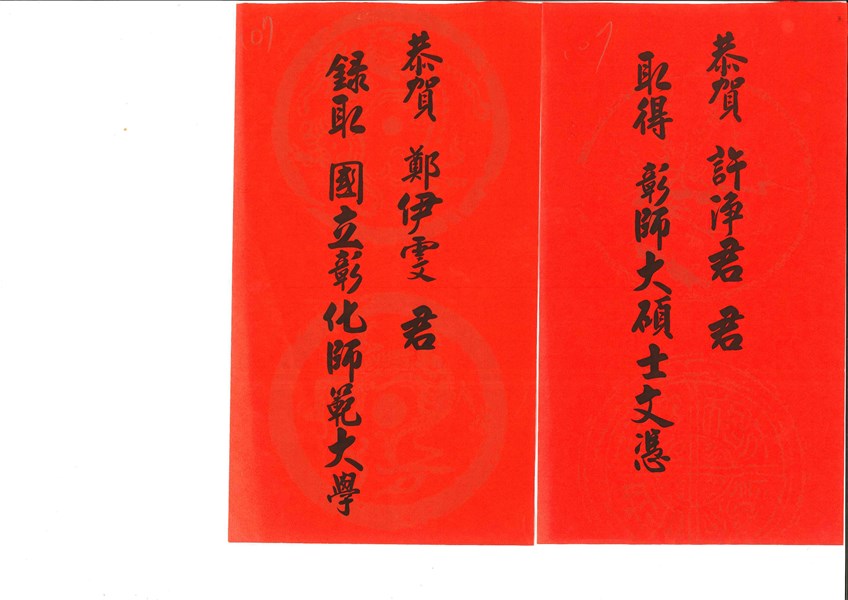 恭賀 許淨君 君
取得 彰師大碩士文憑
恭賀 鄭伊雯 君
錄取 國立彰化師範大學
107
107